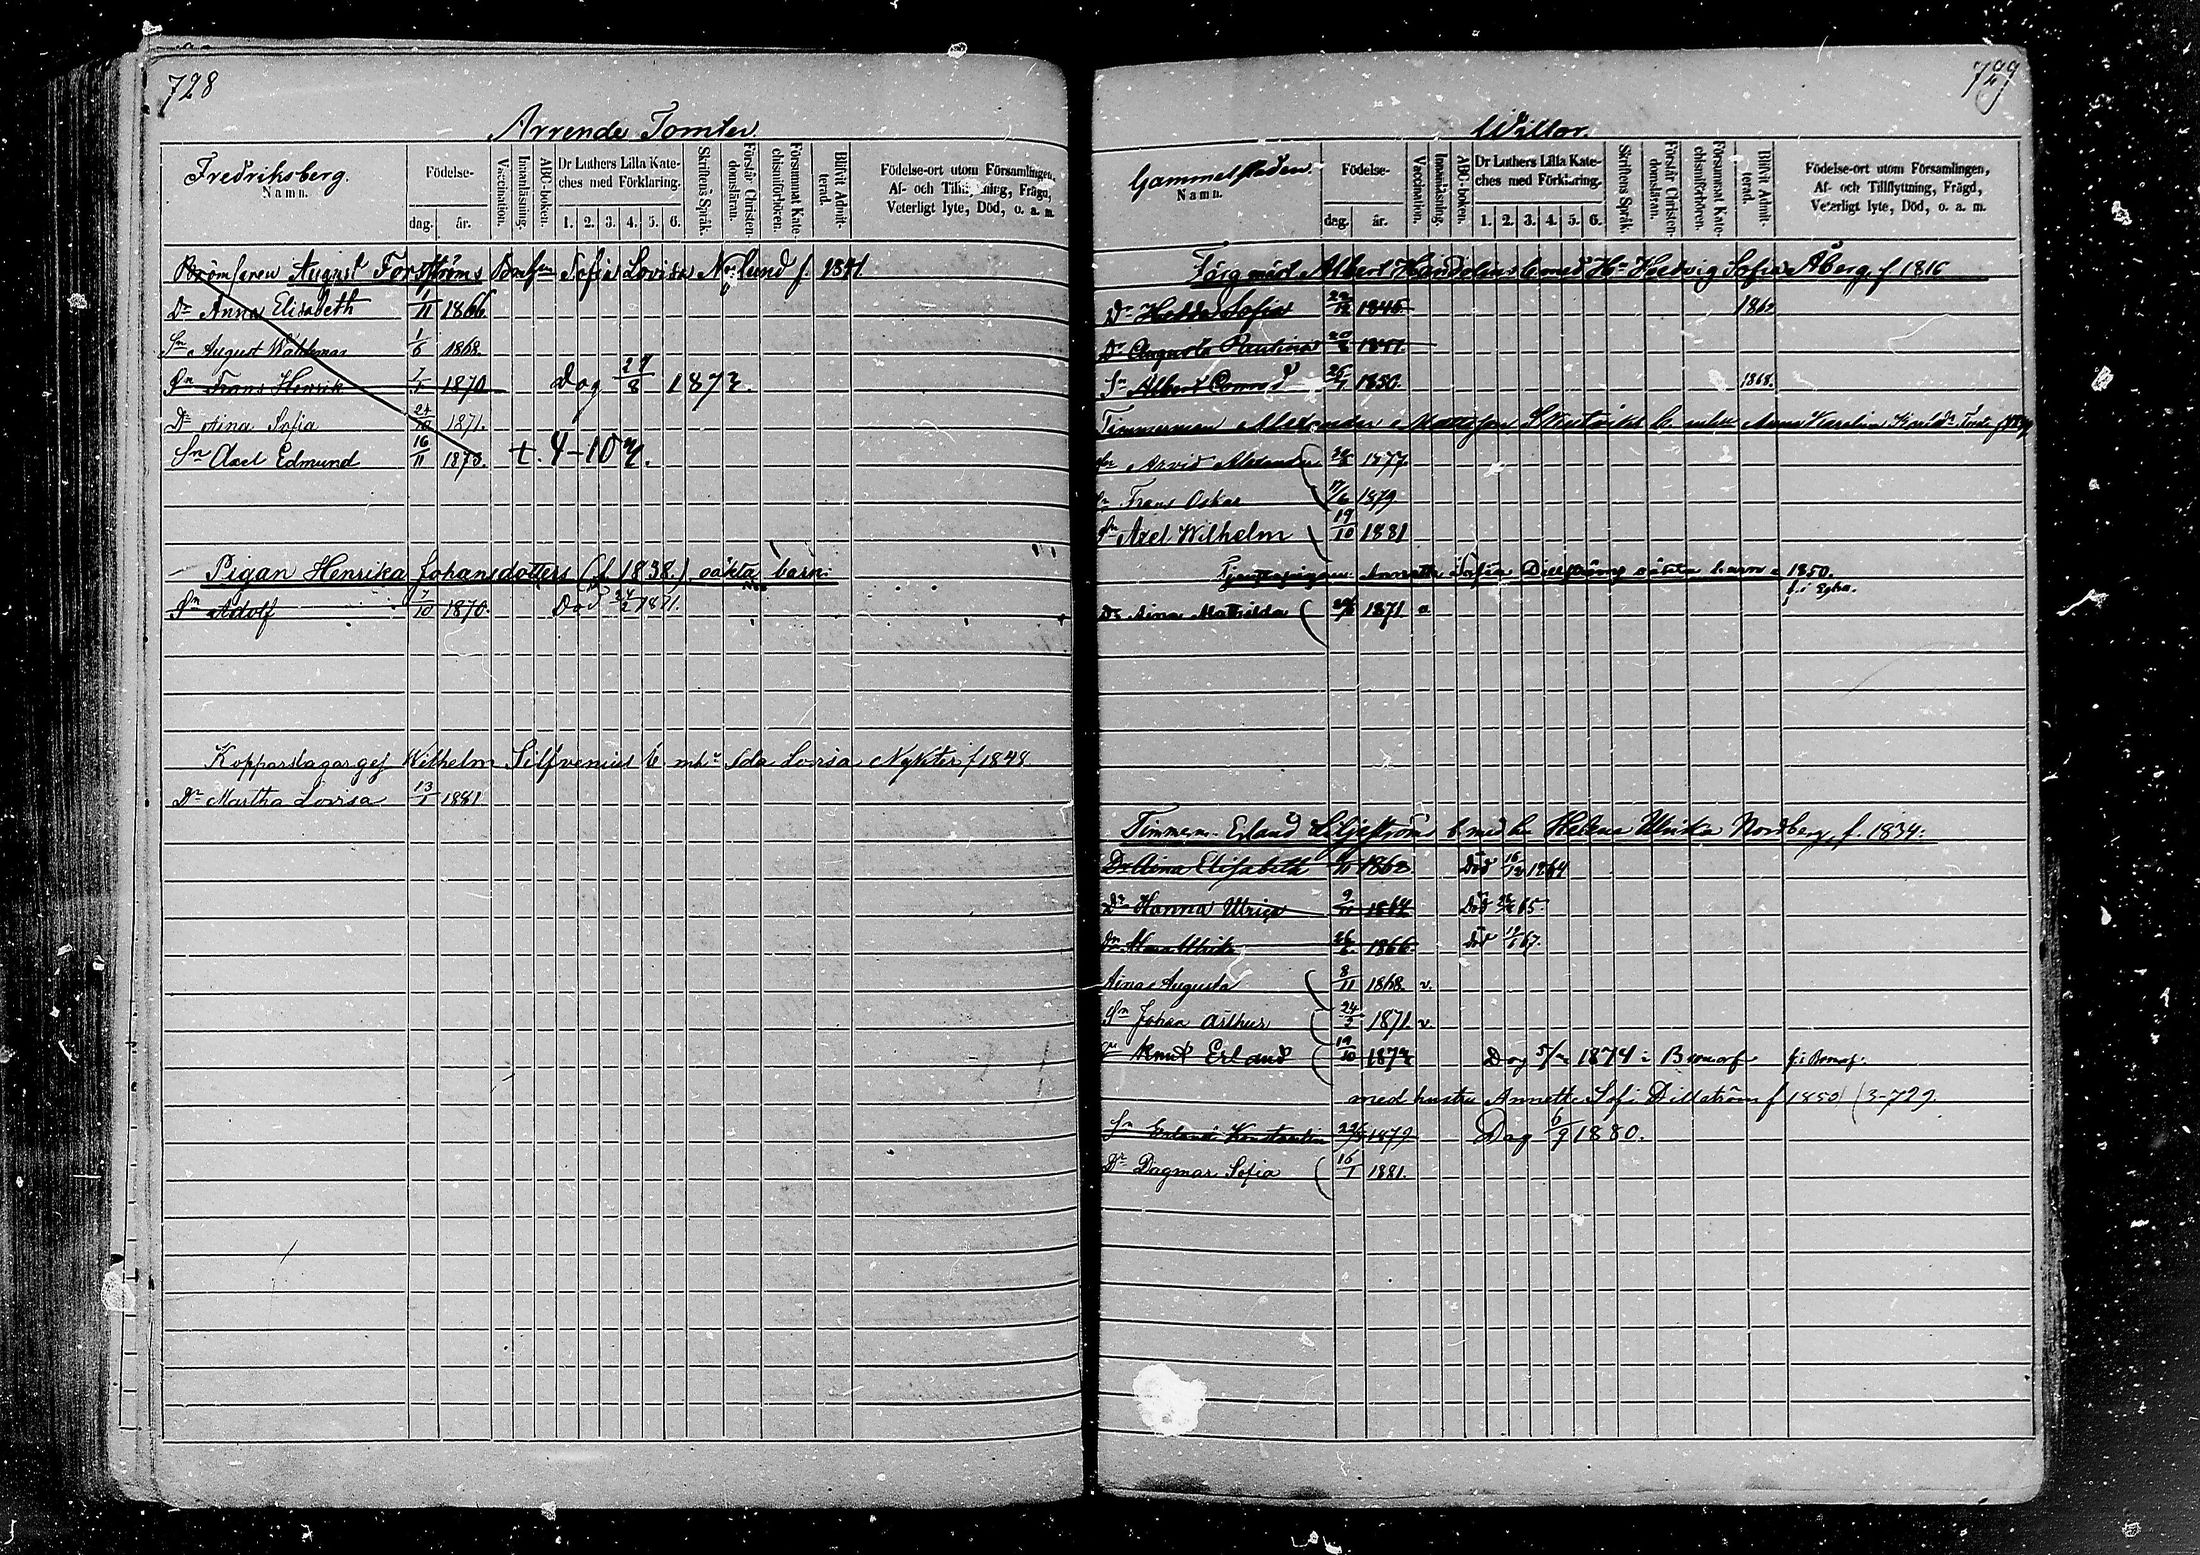 728
Arrende Tomter.
Fredriksberg.
Namn.
Födelse-
dag. år.
Vaccination.
Innanläsning.
ABC-boken.
Dr Luthers Lilla Kate-
ches med Förklaring.
1. 2. 3. 4. 5. 6.
Skriftens Språk.
Förstår Christen-
domsläran.
Försummat Kate-
chismiförhören.
Blifvit Admit-
terad.
Födelse-ort utom Församlingen,
Af- och Tillflyttning, Frägd,
Veterligt lyte, Död, o. a. m.
August Forsströms Sofia Lovisa f. 1841
Dr Anna Elisabeth 1/11 1866
Sn August Waldemar 1/6 1868.
Sn Frans Henrik 1870 dog 27/8 1872.
Dr Aina Sofia 24/10 1871.
Sn Axel Edmund 16/11 1873. t. 4-10
Pigan Henrika Johansdotters (f. 1838.) oäkta barn:
Sn Adolf 7/10 1870. Död 24/2 1871.
Kopparslagargej Wilhelm Silfvenius b. m. hu Ida Lovisa Nykter f 1848
Dr Martha Lovisa 13/1 1881
729
Willor.
Gammelstaden
Namn.
Födelse-
dag. år.
Vaccination.
Innanläsning.
ABC-boken.
Dr Luthers Lilla Kate-
ches med Förklaring.
1. 2. 3. 4. 5. 6.
Skriftens Språk.
Förstår Christen-
domsläran.
Försummat Kate-
chismiförhören.
Blifvit Admit-
terad.
Födelse-ort utom Församlingen,
Af- och Tillflyttning, Frägd,
Veterligt lyte, Död, o. a. m.
Albert b. med Hu Hedvig Sofia Åberg, f 1816
Dr Hilda Sofia 1845
Dr Augusta Paulina
Sn Albert Conrad 1850. 1868.
Timmerman Alexander Mattsson
Sn Arvid Alexander 1877.
Sn Frans Oskar 17/6 1879
Sn Axel Wilhelm 19/10 1881
Tjenstepigan Annette Sofia Dillström oäkta barn 1850.
Dr Aina Mathilda 1871
Timmerm. Erland Liljeström b. med hu Helena Ulrika Nordberg, f. 1834:
Dr Aina Elisabeth Död 16/12 1864
Dr Hanna Ulrica 1864 Död 65.
1866 död 67.
Aina Augusta 8/11 1868 v.
Sn Johan Arthur 1871. v.
Sn Knut Erland 19/10 1872 Dog 1874 i Bromarf
med hustru Annette Sofi Dillström f 1850 (S-729.
Sn Erland Konstantin 1879 Dog 6/9 1880.
Dr Dagmar Sofia 16/1 1881.